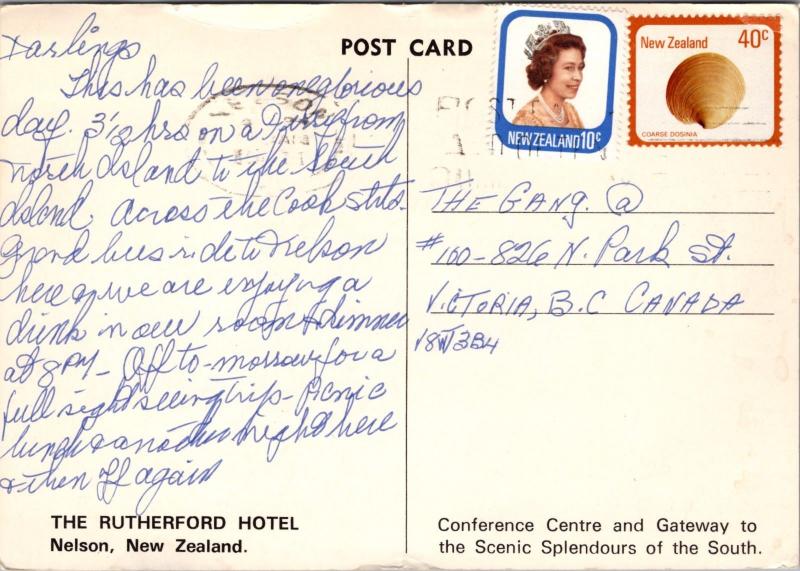 POST CARD
Darlings
This has been one glorious
day. 3½ hrs on a Ferry from
North Island to the South
Island, across the Cook Strts.
Grand bus ride to Nelson
here & we are enjoying a
drink in our room & dinner
at 8 PM - Off to-morrow for a
full sightseeing trip - Picnic
lunch & another night here
& then off again
THE RUTHERFORD HOTEL
Nelson, New Zealand.
NEW ZEALAND 10c
New Zealand 40c
COARSE DOSINIA
THE GANG. @
#100-826 N. Park St.
VICTORIA, B.C CANADA
V8W 3B4
Conference Centre and Gateway to
the Scenic Splendours of the South.